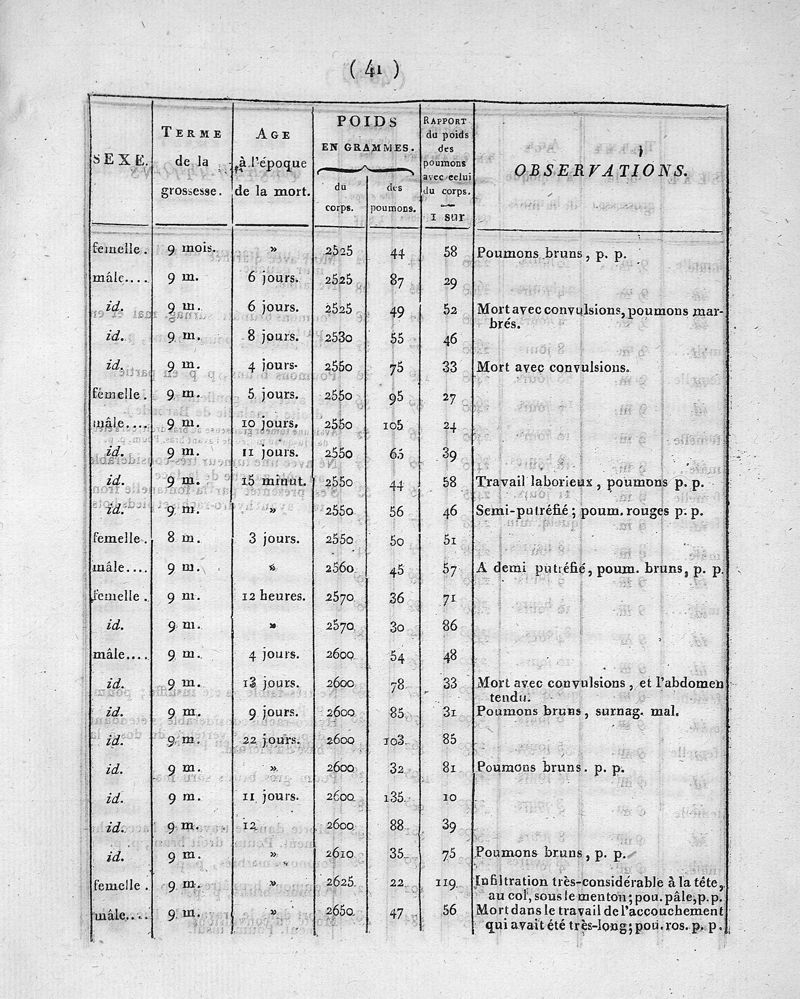 ( 41 )
SEXE. TERME de la grossesse. AGE à l'époque de la mort. POIDS EN GRAMMES. du corps. des poumons. RAPPORT du poids des poumons avec celui du corps. — 1 sur OBSERVATIONS.
femelle. 9 mois. » 2525 44 58 Poumons bruns, p. p.
mâle.... 9 m. 6 jours. 2525 87 29
id. 9 m. 6 jours. 2525 49 52 Mort avec convulsions, poumons mar-
brés.
id. 9 m. 8 jours. 2530 55 46
id. 9 m. 4 jours. 2550 75 33 Mort avec convulsions.
fémelle. 9 m. 5 jours. 2550 95 27
mâle.... 9 m. 10 jours. 2550 105 24
id. 9 m. 11 jours. 2550 65 39
id. 9 m. 15 minut. 2550 44 58 Travail laborieux, poumons p. p.
id. 9 m. » 2550 56 46 Semi-putréfié; poum. rouges p. p.
femelle. 8 m. 3 jours. 2550 50 51
mâle.... 9 m. » 2560 45 57 A demi putréfié, poum. bruns, p. p.
femelle. 9 m. 12 heures. 2570 36 71
id. 9 m. » 2570 30 86
mâle.... 9 m. 4 jours. 2600 54 48
id. 9 m. 13 jours. 2600 78 33 Mort avec convulsions, et l'abdomen
tendu.
id. 9 m. 9 jours. 2600 85 31 Poumons bruns, surnag. mal.
id. 9 m. 22 jours. 2600 103 85
id. 9 m. » 2600 32 81 Poumons bruns. p. p.
id. 9 m. 11 jours. 2600 135 10
id. 9 m. 12 2600 88 39
id. 9 m. » 2610 35 75 Poumons bruns, p. p.
femelle. 9 m. » 2625 22 119 Infiltration très-considérable à la tête,
au col, sous le menton; pou. pâle, p. p.
mâle.... 9 m. » 2650 47 56 Mort dans le travail de l'accouchement
qui avait été très-long; pou. ros. p. p.